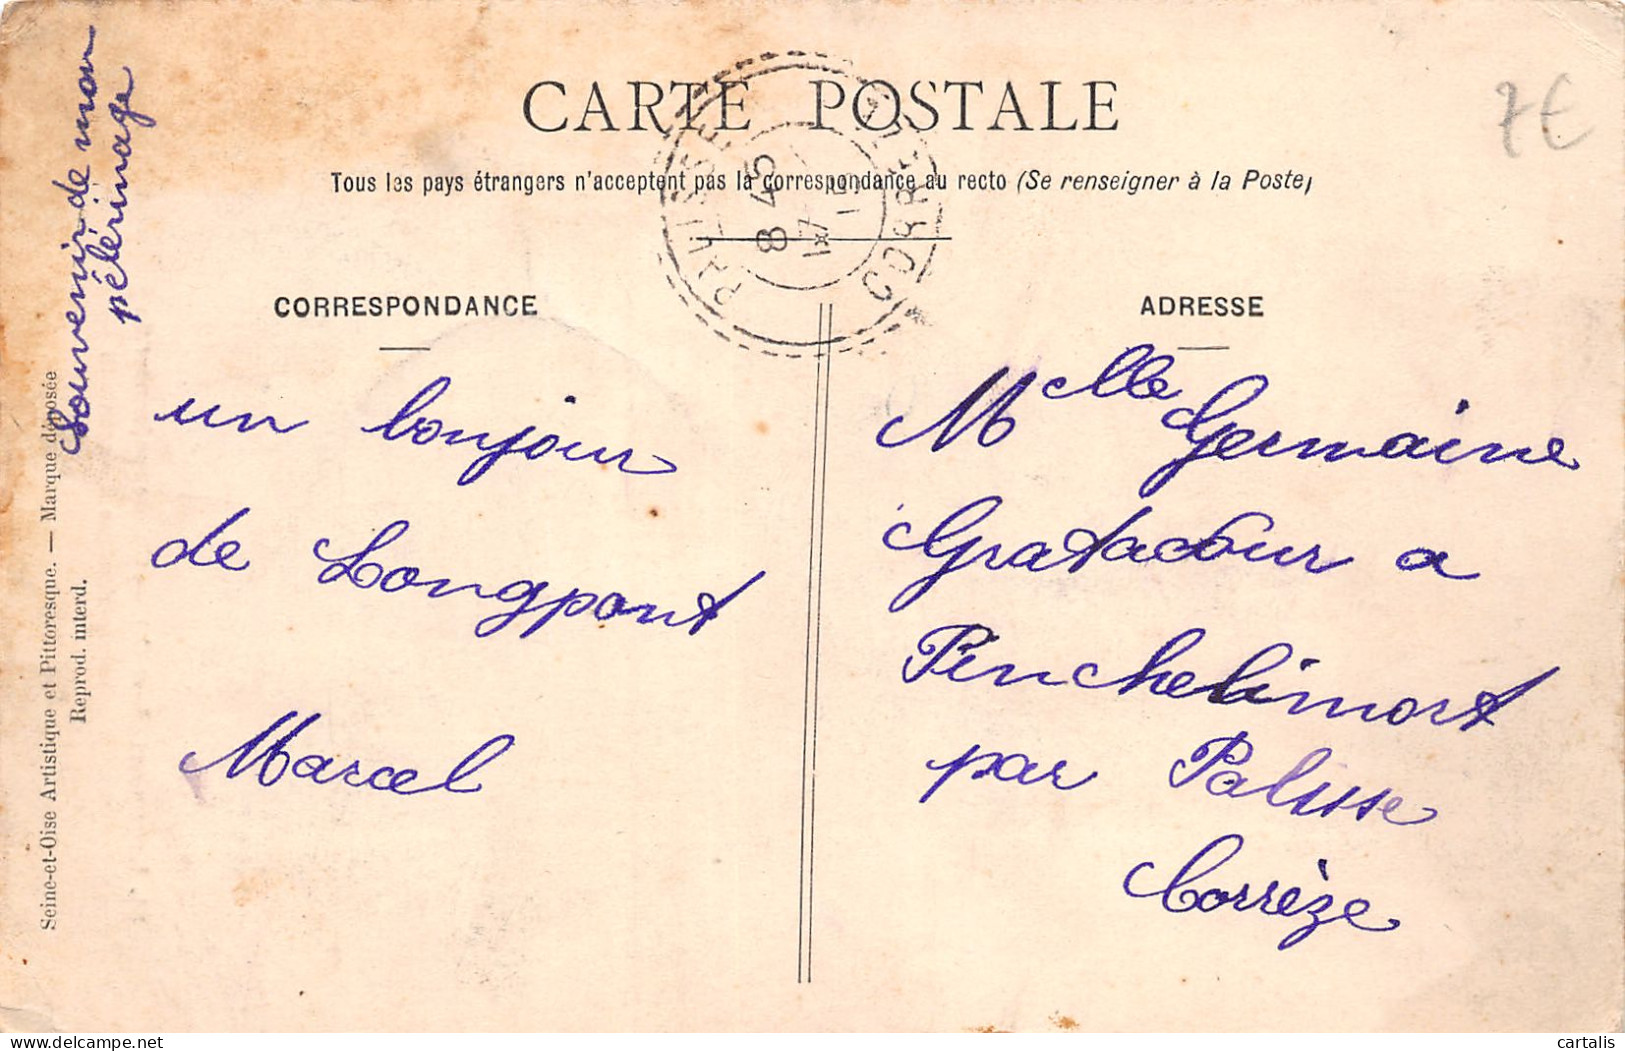 CARTE POSTALE
7€
Tous les pays étrangers n'acceptent pas la correspondance au recto (Se renseigner à la Poste)
PALISSE
8 45
7
CORRÈZE
CORRESPONDANCE
ADRESSE
Souvenir de mon
pélérinage
un bonjour
de Longpont
Marcel
Mlle Germaine
Gratadour a
Penchelimort
par Palisse
Corrèze
Seine-et-Oise Artistique et Pittoresque. — Marque déposée
Reprod. interd.
cartalis
delcampe.net